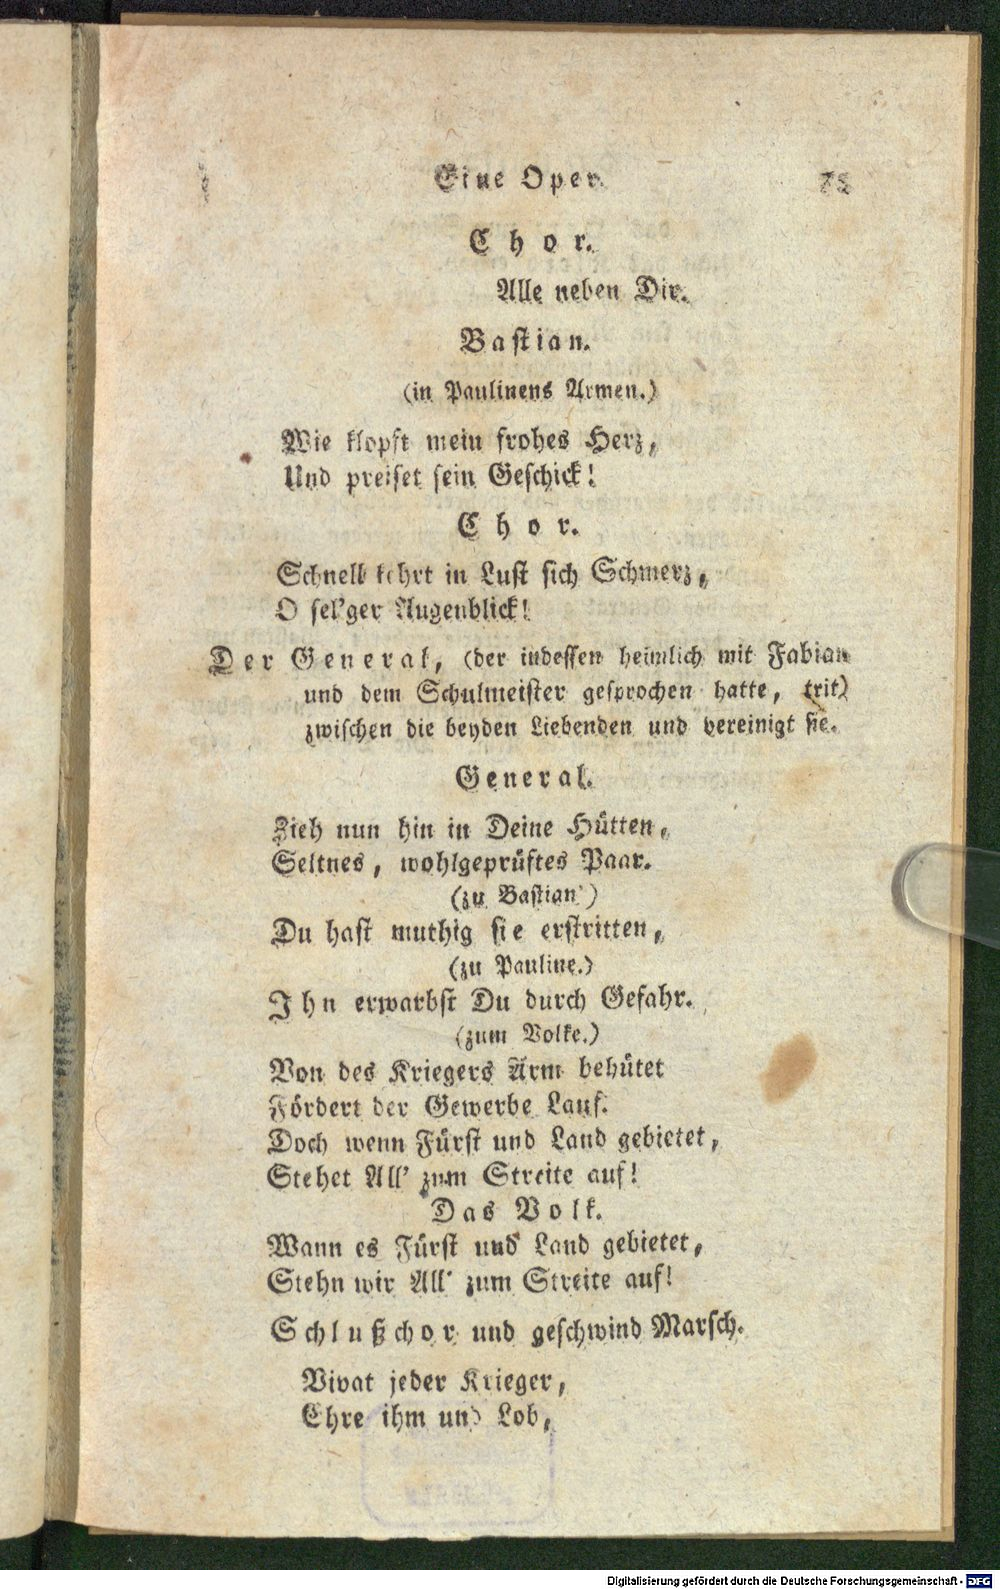 Eine Oper. 75
Chor.
Alle neben Dir.
Bastian.
(in Paulinens Armen.)
Wie klopft mein frohes Herz,
Und preiset sein Geschick!
Chor.
Schnell kehrt in Lust sich Schmerz,
O sel'ger Augenblick!
Der General, (der indessen heimlich mit Fabian
und dem Schulmeister gesprochen hatte, trit)
zwischen die beyden Liebenden und vereinigt sie.
General.
Zieh nun hin in Deine Hütten,
Seltnes, wohlgeprüftes Paar.
(zu Bastian)
Du hast muthig sie erstritten,
(zu Pauline.)
Ihn erwarbst Du durch Gefahr.
(zum Volke.)
Von des Kriegers Arm behütet
Fördert der Gewerbe Lauf.
Doch wenn Fürst und Land gebietet,
Stehet All' zum Streite auf!
Das Volk.
Wann es Fürst und Land gebietet,
Stehn wir All' zum Streite auf!
Schlußchor und geschwind Marsch.
Vivat jeder Krieger,
Ehre ihm und Lob,
Digitalisierung gefördert durch die Deutsche Forschungsgemeinschaft - DFG